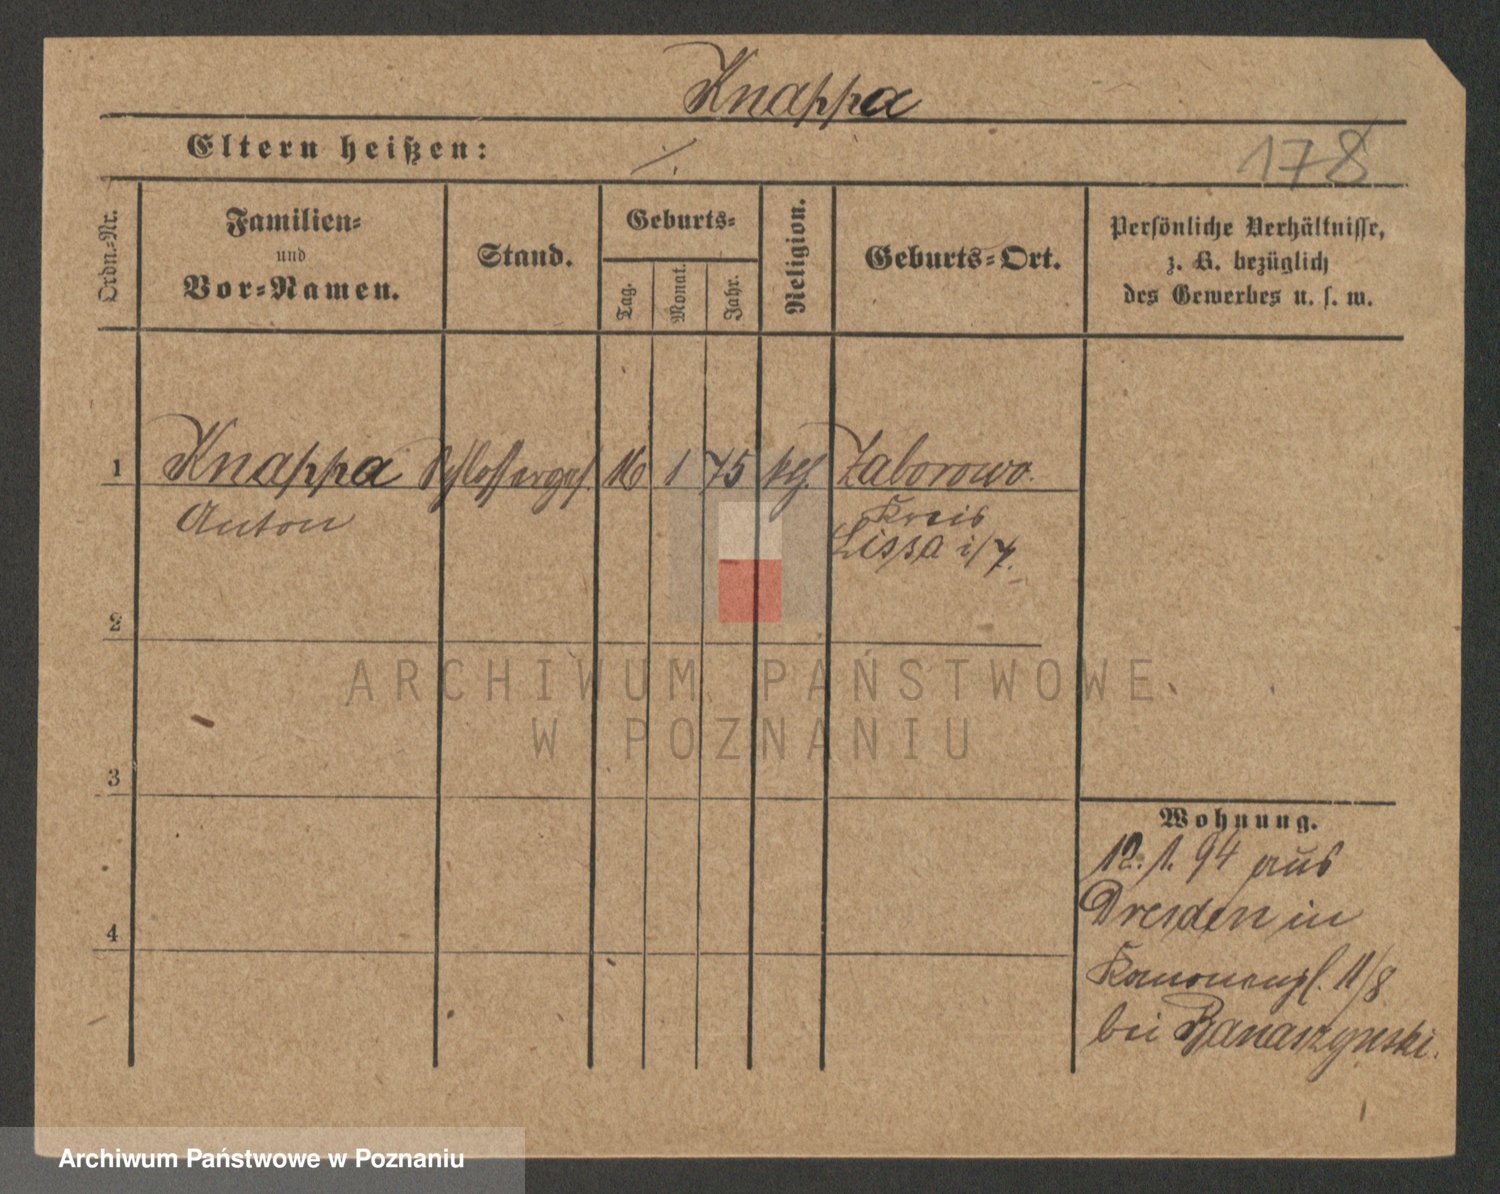 Knappa
Eltern heißen: ./.
178
Ordn.-Nr.
Familien-
und
Vor-Namen.
Stand.
Geburts-
Tag.
Monat.
Jahr.
Religion.
Geburts-Ort.
Persönliche Verhältnisse,
z. B. bezüglich
des Gewerbes u. s. w.
1 Knappa Schlosserges. 16 1 75 Zaborowo.
Anton Kreis
Lissa i/
2
ARCHIWUM PAŃSTWOWE
W POZNANIU
3
Wohnung.
12. 1. 94 aus
Dresden in
Kanonenpl. 11/8
bei Banaszynski.
4
Archiwum Państwowe w Poznaniu